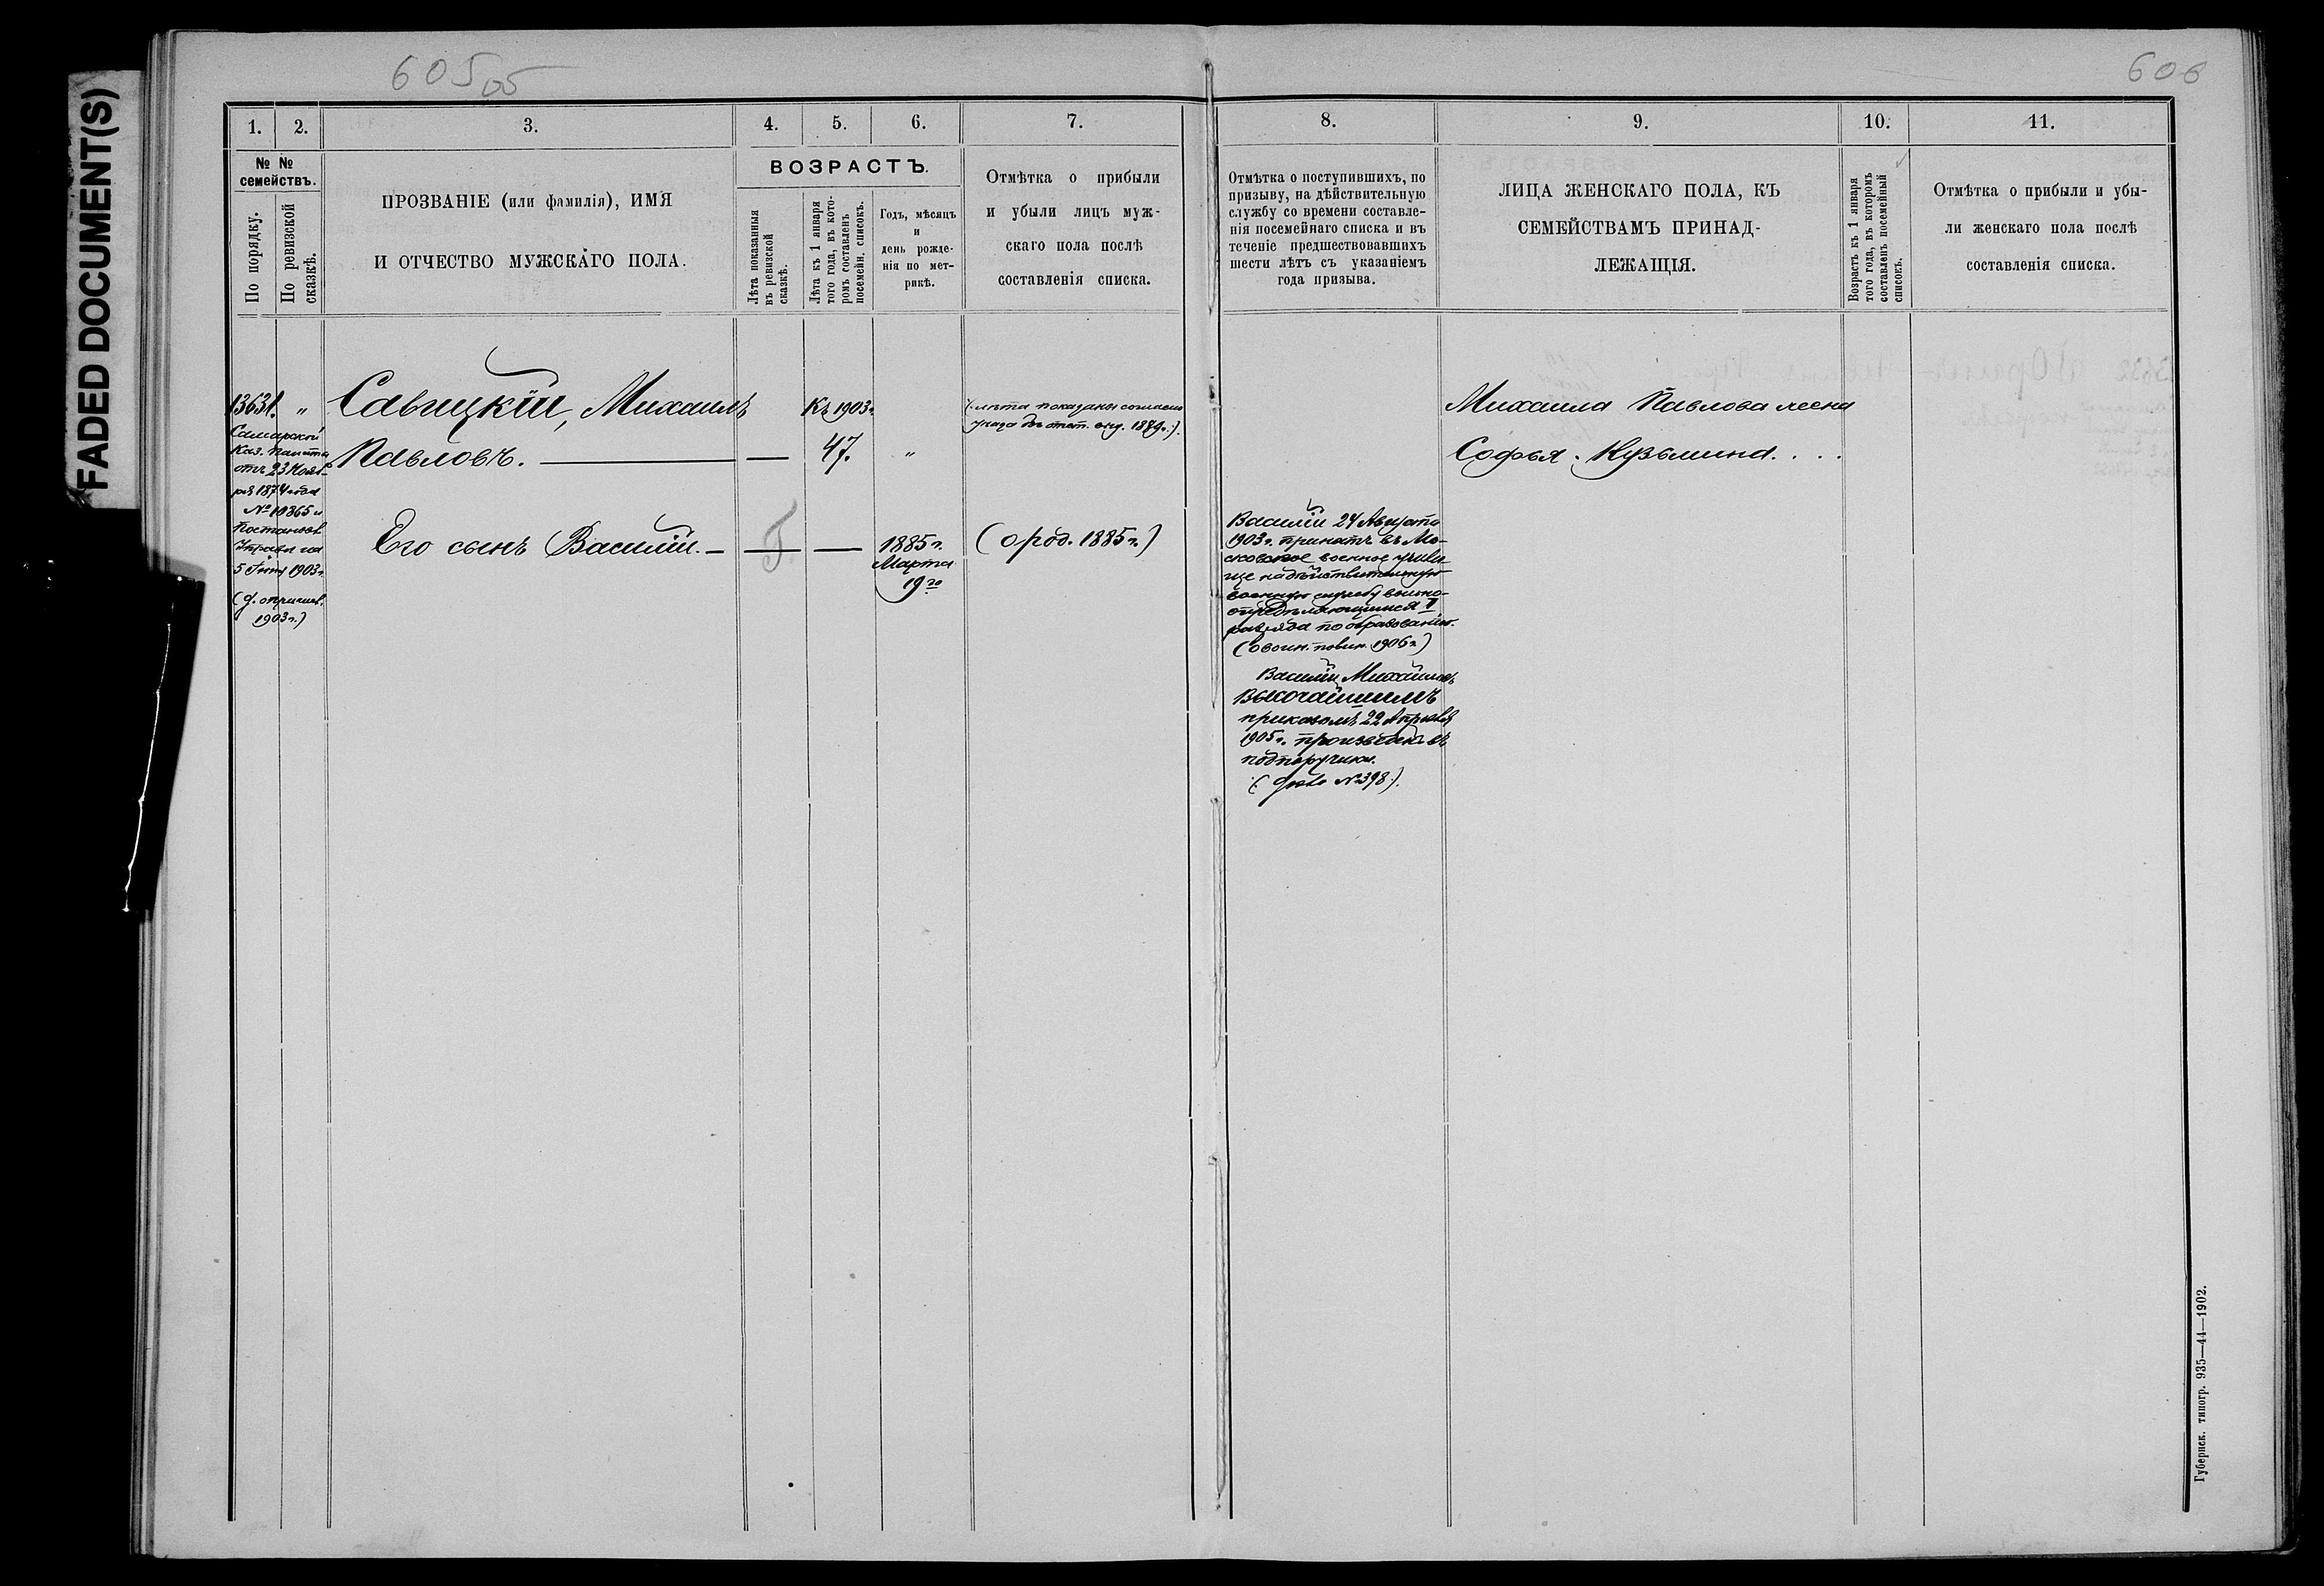 FADED DOCUMENT(S)
605 05
606
1.
2.
3.
4.
5.
6.
7.
8.
9.
10.
11.
№ №
семействъ.
По порядку.
По ревизской
сказкѣ.
ПРОЗВАНІЕ (или фамилія), ИМЯ
И ОТЧЕСТВО МУЖСКАГО ПОЛА.
ВОЗРАСТЪ.
Лѣта показанныя
въ ревизской
сказкѣ.
Лѣта къ 1 января
того года, въ кото-
ромъ составленъ
посемейн. списокъ.
Годъ, мѣсяцъ
и
день рожде-
нія по мет-
рикѣ.
Отмѣтка о прибыли
и убыли лицъ муж-
скаго пола послѣ
составленія списка.
Отмѣтка о поступившихъ, по
призыву, на дѣйствительную
службу со времени составле-
нія посемейнаго списка и въ
теченіе предшествовавшихъ
шести лѣтъ съ указаніемъ
года призыва.
ЛИЦА ЖЕНСКАГО ПОЛА, КЪ
СЕМЕЙСТВАМЪ ПРИНАД-
ЛЕЖАЩІЯ.
Возрастъ къ 1 января
того года, въ которомъ
составленъ посемейный
списокъ.
Отмѣтка о прибыли и убы-
ли женскаго пола послѣ
составленія списка.
13631. „
Самарской
Каз. Палаты
отъ 23 Нояб-
ря 1874 года
№ 10865 и
Постановл.
Управы на
5 Іюня 1903 г.
1903 г.)
Савицкій, Михаилъ
Павловъ. —
Къ 1903 г.
47.
„
(лѣта показаны согласно
1879г.).
Его сынъ Василій. —
1885 г.
Марта
19го
(о род. 1885 г.)
Василій 24 Августа
1903 г. принятъ въ Мо-
сковское военное учили-
ще на дѣйствительную
военную службу вольно-
опредѣляющимся II
разряда по образованію.
(о воин. повин. 1906 г.)
Василій Михайловъ
Высочайшимъ
приказомъ 22 Апрѣля
1905 г. произведенъ въ
подпоручики.
(Дѣло № 398).
Михаила Павлова жена
Софья Кузьмина. . . .
Губернск. типогр. 935—44—1902.